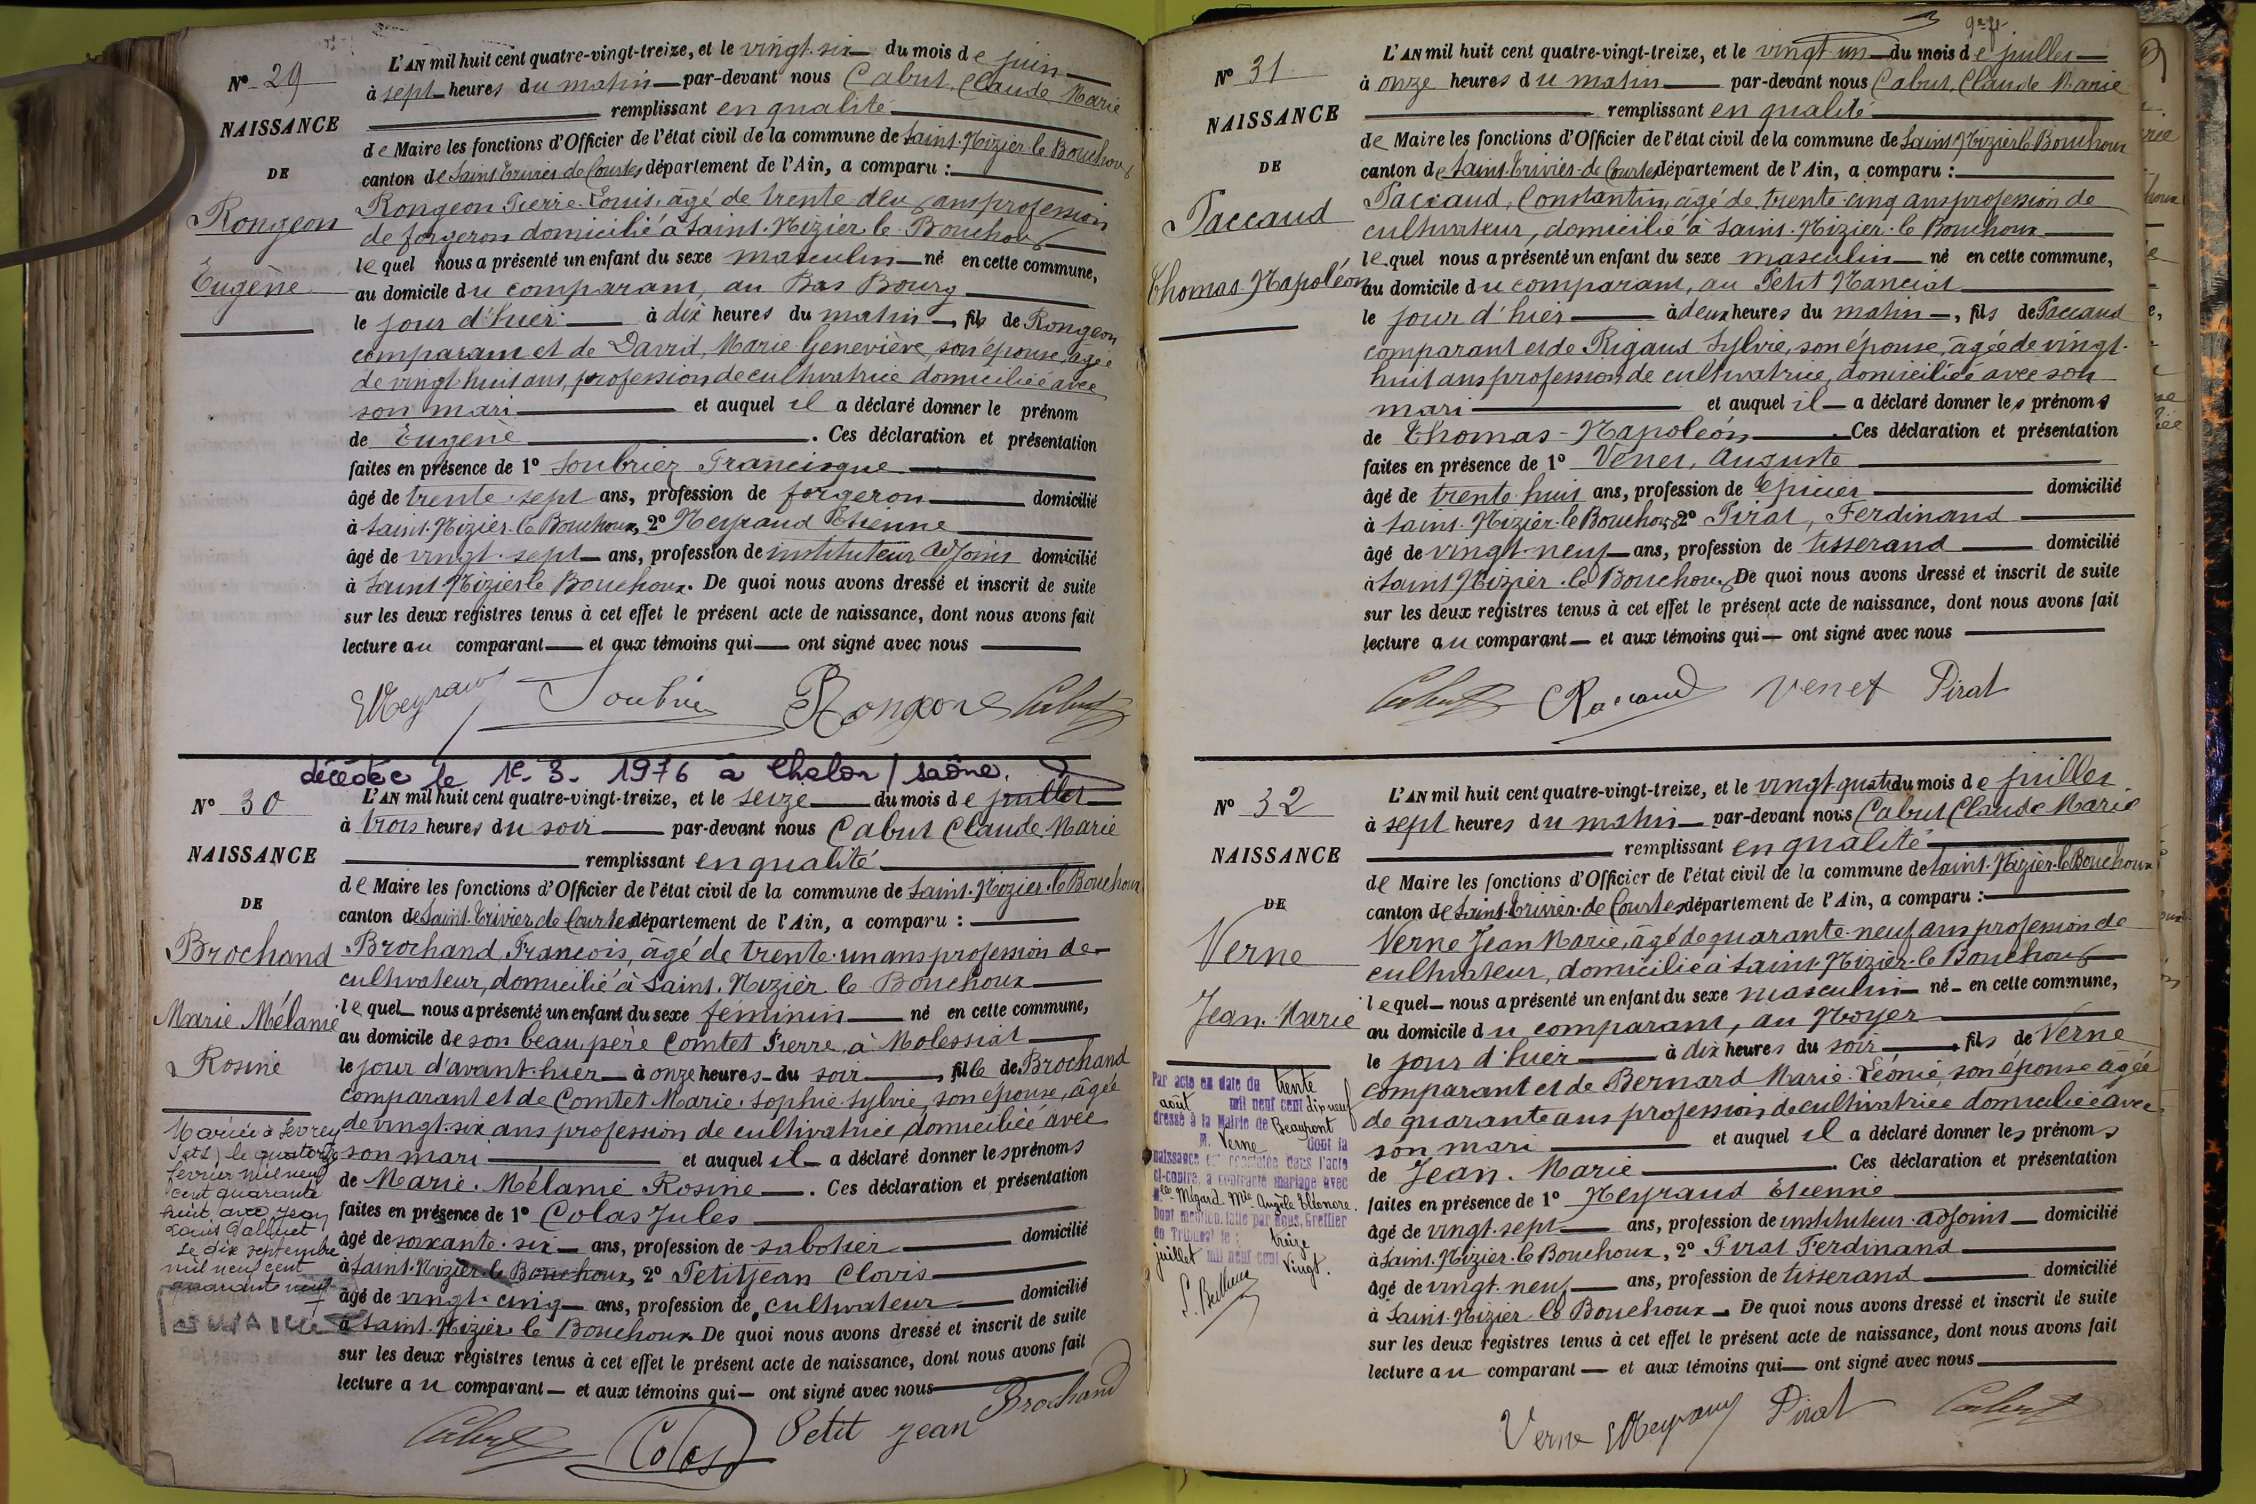 N° 29
NAISSANCE
DE
Rongeon
Eugène
L'AN mil huit cent quatre-vingt-treize, et le vingt-six du mois de juin
à sept heures du matin par-devant nous Cabut, Claude Marie
remplissant en qualité
de Maire les fonctions d'Officier de l'état civil de la commune de Saint-Nizier-le-Bouchoux
canton de Saint-Trivier-de-Courtes département de l'Ain, a comparu :
Rongeon Pierre-Louis, âgé de trente-deux ans profession
de forgeron domicilié à Saint-Nizier-le-Bouchoux
lequel nous a présenté un enfant du sexe masculin né en cette commune,
au domicile du comparant, au Bas Bourg
le jour d'hier à dix heures du matin, fils de Rongeon
comparant et de David, Marie Geneviève, son épouse, âgée
de vingt-huit ans, profession de cultivatrice domiciliée avec
son mari et auquel il a déclaré donner le prénom
de Eugène. Ces déclaration et présentation
faites en présence de 1° Soubriez Francisque
âgé de trente-sept ans, profession de forgeron domicilié
à Saint-Nizier-le-Bouchoux, 2° Meyraud Etienne
âgé de vingt-sept ans, profession de instituteur adjoint domicilié
à Saint-Nizier-le-Bouchoux. De quoi nous avons dressé et inscrit de suite
sur les deux registres tenus à cet effet le présent acte de naissance, dont nous avons fait
lecture au comparant et aux témoins qui ont signé avec nous
EMeyraud Soubriez Rongeon Cabut
décédée le 1e-3-1976 à Chalon/Saône.
N° 30
NAISSANCE
DE
Brochand
Marie Mélanie
Rosine
Mariée à Sevrey
(S et L) le quatorze
février mil neuf
cent quarante
huit avec Jean
Louis
Le dix septembre
mil neuf cent
quarante neuf
L'AN mil huit cent quatre-vingt-treize, et le seize du mois de juillet
à trois heures du soir par-devant nous Cabut Claude Marie
remplissant en qualité
de Maire les fonctions d'Officier de l'état civil de la commune de Saint-Nizier-le-Bouchoux
canton de Saint-Trivier-de-Courtes département de l'Ain, a comparu :
Brochand, François, âgé de trente-un ans profession de
cultivateur, domicilié à Saint-Nizier-le-Bouchoux
lequel nous a présenté un enfant du sexe féminin né en cette commune,
au domicile de son beau-père Comtet Pierre, à Molessiat
le jour d'avant-hier à onze heures du soir, fille de Brochand
comparant et de Comtet Marie-Sophie-Sylvie, son épouse, âgée
de vingt-six ans profession de cultivatrice domiciliée avec
son mari et auquel il a déclaré donner les prénoms
de Marie-Mélanie Rosine. Ces déclaration et présentation
faites en présence de 1° Colas Jules
âgé de soixante-six ans, profession de sabotier domicilié
à Saint-Nizier-le-Bouchoux, 2° Petitjean Clovis
âgé de vingt-cinq ans, profession de cultivateur domicilié
à Saint-Nizier-le-Bouchoux De quoi nous avons dressé et inscrit de suite
sur les deux registres tenus à cet effet le présent acte de naissance, dont nous avons fait
lecture au comparant et aux témoins qui ont signé avec nous
Cabut Colas Petit jean Brochand
N° 31
NAISSANCE
DE
Paccaud
Thomas Napoléon
L'AN mil huit cent quatre-vingt-treize, et le vingt-un du mois de juillet
à onze heures du matin par-devant nous Cabut, Claude Marie
remplissant en qualité
de Maire les fonctions d'Officier de l'état civil de la commune de Saint-Nizier-le-Bouchoux
canton de Saint-Trivier-de-Courtes département de l'Ain, a comparu :
Paccaud, Constantin, âgé de trente-cinq ans profession de
cultivateur, domicilié à Saint-Nizier-le-Bouchoux
lequel nous a présenté un enfant du sexe masculin né en cette commune,
au domicile du comparant, au Petit Manciat
le jour d'hier à deux heures du matin, fils de Paccaud
comparant et de Rigaud Sylvie, son épouse, âgée de vingt-
huit ans profession de cultivatrice, domiciliée avec son
mari et auquel il a déclaré donner les prénoms
de Thomas-Napoléon. Ces déclaration et présentation
faites en présence de 1° Venet, Auguste
âgé de trente-huit ans, profession de Epicier domicilié
à Saint-Nizier-le-Bouchoux 2° Pirat, Ferdinand
âgé de vingt-neuf ans, profession de tisserand domicilié
à Saint-Nizier-le-Bouchoux De quoi nous avons dressé et inscrit de suite
sur les deux registres tenus à cet effet le présent acte de naissance, dont nous avons fait
lecture au comparant et aux témoins qui ont signé avec nous
Cabut CPaccaud Venet Pirat
N° 32
NAISSANCE
DE
Verne
Jean-Marie
Par acte en date du trente
août mil neuf cent dix neuf
dressé à la Mairie de Beaupont
M. Verne dont la
naissance est constatée dans l'acte
ci-contre, a contracté mariage avec
Mlle Mégard Mie Angèle Eléonore.
Dont mention faite par nous, Greffier
du Tribunal le : treize
juillet mil neuf cent vingt.
L'AN mil huit cent quatre-vingt-treize, et le vingt-quatre du mois de juillet
à sept heures du matin par-devant nous Cabut Claude Marie
remplissant en qualité
de Maire les fonctions d'Officier de l'état civil de la commune de Saint-Nizier-le-Bouchoux
canton de Saint-Trivier-de-Courtes département de l'Ain, a comparu :
Verne Jean Marie, âgé de quarante-neuf ans profession de
cultivateur, domicilié à Saint-Nizier-le-Bouchoux
lequel nous a présenté un enfant du sexe masculin né en cette commune,
au domicile du comparant, au Noyer
le jour d'hier à dix heures du soir fils de Verne
comparant et de Bernard Marie-Léonie, son épouse âgée
de quarante ans profession de cultivatrice domiciliée avec
son mari et auquel il a déclaré donner les prénoms
de Jean-Marie. Ces déclaration et présentation
faites en présence de 1° Meyraud Etienne
âgé de vingt-sept ans, profession de instituteur-adjoint domicilié
à Saint-Nizier-le-Bouchoux, 2° Pirat Ferdinand
âgé de vingt-neuf ans, profession de tisserand domicilié
à Saint-Nizier-le-Bouchoux. De quoi nous avons dressé et inscrit de suite
sur les deux registres tenus à cet effet le présent acte de naissance, dont nous avons fait
lecture au comparant et aux témoins qui ont signé avec nous
Verne EMeyraud Pirat Cabut